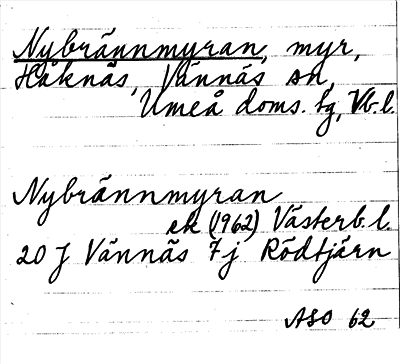 Nybrännmyran, myr,
Håknäs, Vännäs sn,
Umeå doms. tg, Vb. l.
Nybrännmyran
ek (1962) Västerb. l.
20 J Vännäs 7 j Rödtjärn
ASO 62